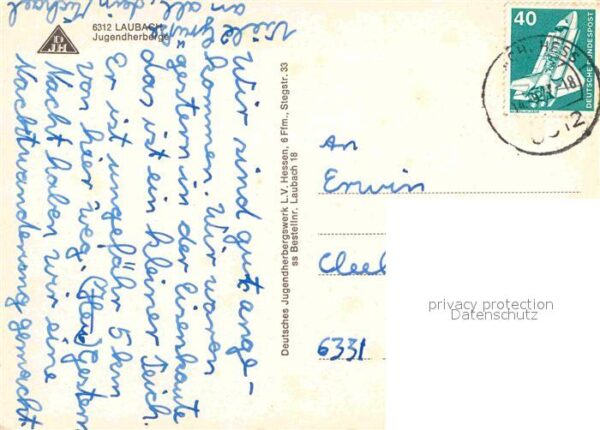 6312 LAUBACH
Jugendherberge
DJH
Wir sind gut ange-
kommen. Wir waren
gestern in der Eisenkaute
das ist ein kleiner Teich.
Er ist ungefähr 5 km
von hier weg. gestern
Nacht haben wir eine
Nachtwanderung gemacht
Viele
an alle, dein Michael
Deutsches Jugendherbergswerk L.V. Hessen, 6 Ffm., Stegstr. 33
ss Bestellnr. Laubach 18
40
DEUTSCHE BUNDESPOST
An
Erwin
6331
privacy protection
Datenschutz